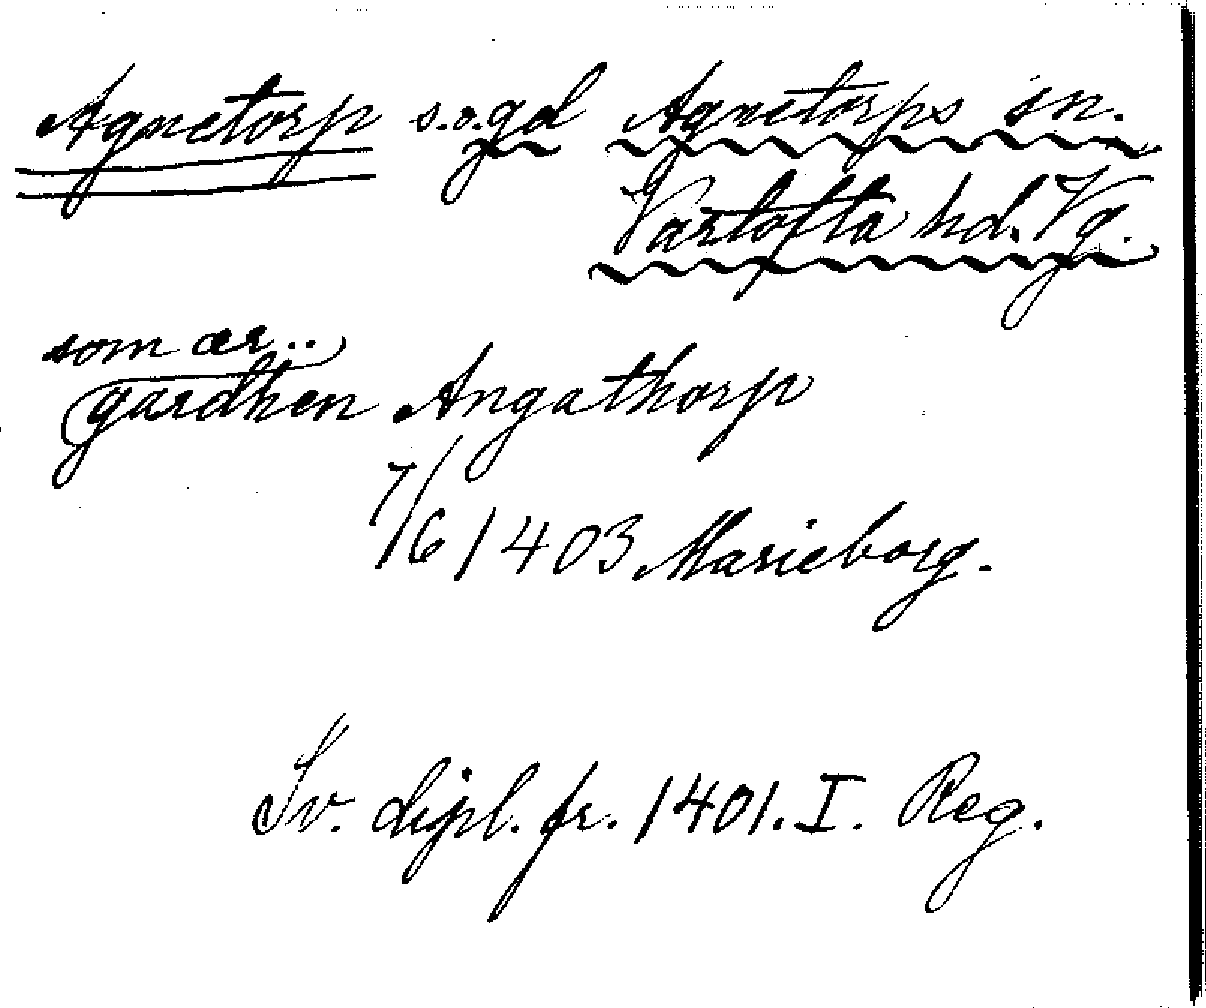 Agnetorp s.o.gd Agnetorps sn.
Vartofta hd. Vg.
som ær..
gardhen Angathorp
7/6 1403 Marieborg.
Sv. dipl. fr. 1401. I. Reg.